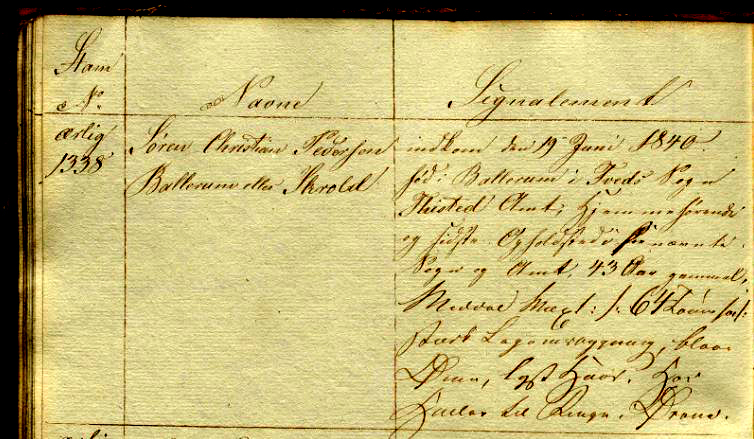 Stam
No
Navne
Signalement
ærlig
1338
Søren Christian Pedersen
Ballerum eller Skrold
indkom den 19 Juni 1840.
fød i Ballerum i Tveds Sogn
Thisted Amt, Hjemmehørende
og sidste Opholdsted i benævnte
Sogn og Amt, 43 Aar gammel,
Middel Vext: /: 64 Tommer :/
stærk Legemsbygning, blaae
Øine, lyst Haar. Har
Huller til Ringe i Ørene.